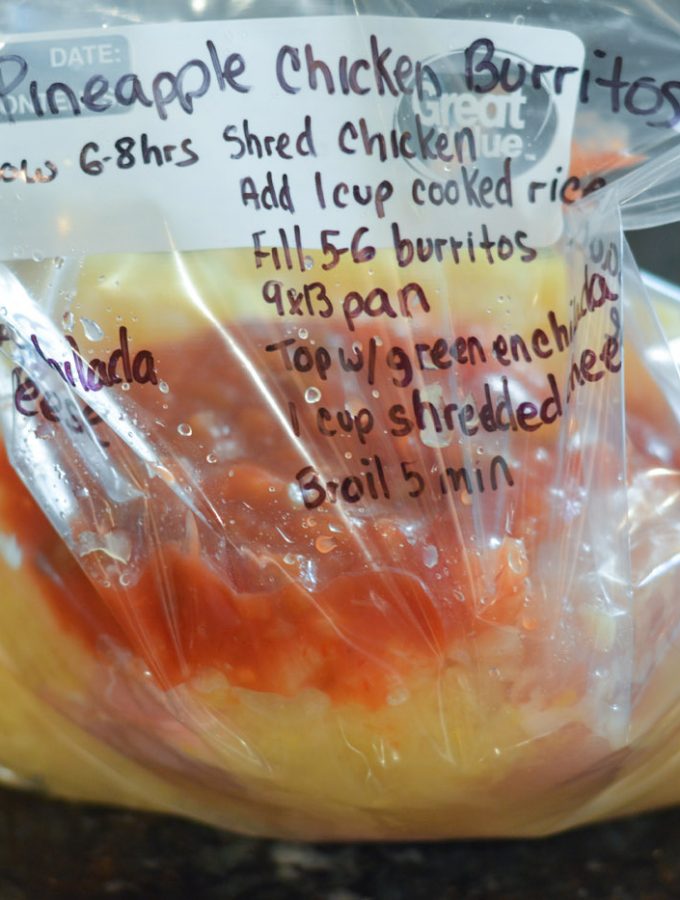 DATE:
Pineapple Chicken Burritos
Great
Value
6-8hrs
Shred Chicken
Add 1 cup cooked rice
Fill 5-6 burritos
9x13 pan
Top w/ green enchilada
1 cup shredded
Broil 5 min